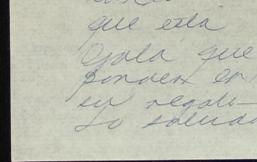 que esta
Ojala que
ponden en
su regali-
Lo saluda